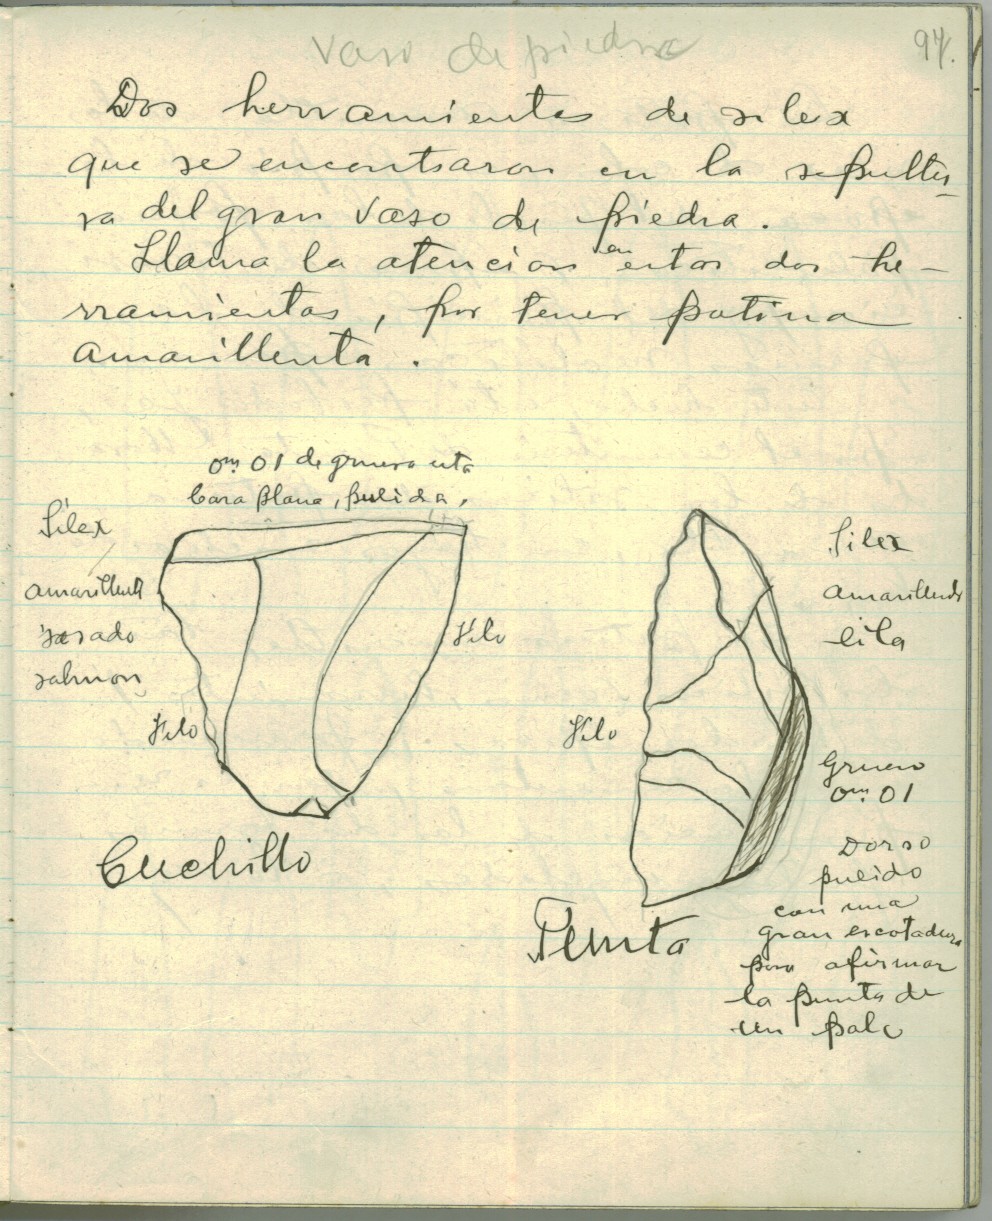 Vaso de piedra
97.
Dos herramientas de silex
que se encontraron en la sepultu-
ra del gran vaso de piedra.
Llama la atencion en estas dos he-
rramientas, por tener patina
amarillenta.
0m 01 de grueso esta
Cara plana, pulida,
Silex
amarillento
rosado
salmon
Filo
Filo
Cuchillo
Silex
amarillento
lila
Filo
Grueso
0m 01
Dorso
pulido
con una
gran escotadura
para afirmar
la punta de
un palo
Punta